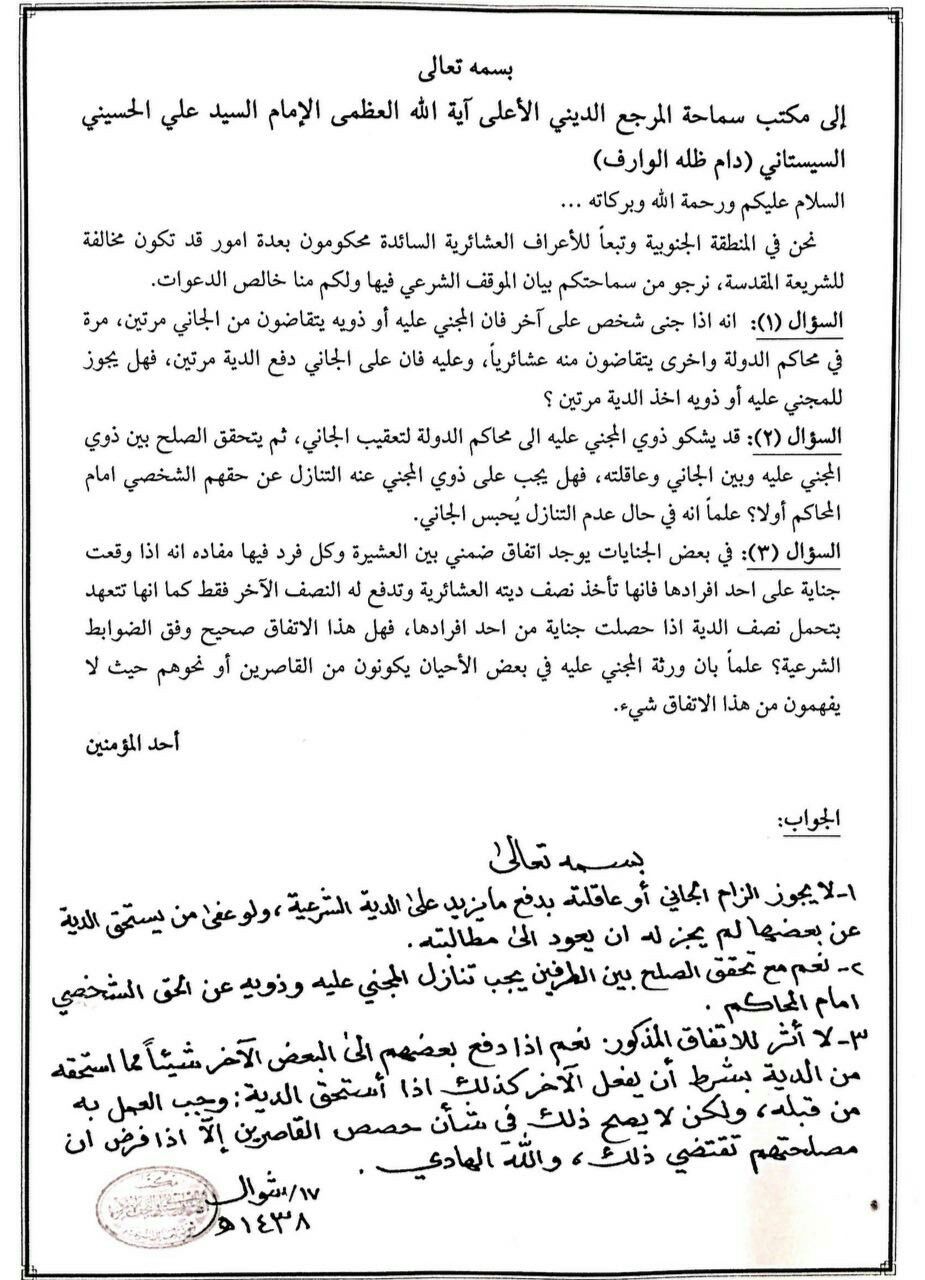 بسمه تعالى
إلى مكتب سماحة المرجع الديني الأعلى آية الله العظمى الإمام السيد علي الحسيني
السيستاني (دام ظله الوارف)
السلام عليكم ورحمة الله وبركاته ...
نحن في المنطقة الجنوبية وتبعاً للأعراف العشائرية السائدة محكومون بعدة امور قد تكون مخالفة
للشريعة المقدسة، نرجو من سماحتكم بيان الموقف الشرعي فيها ولكم منا خالص الدعوات.
السؤال (١): انه اذا جنى شخص على آخر فان المجني عليه أو ذويه يتقاضون من الجاني مرتين، مرة
في محاكم الدولة واخرى يتقاضون منه عشائرياً، وعليه فان على الجاني دفع الدية مرتين، فهل يجوز
للمجني عليه أو ذويه اخذ الدية مرتين ؟
السؤال (٢): قد يشكو ذوي المجني عليه الى محاكم الدولة لتعقيب الجاني، ثم يتحقق الصلح بين ذوي
المجني عليه وبين الجاني وعاقلته، فهل يجب على ذوي المجني عنه التنازل عن حقهم الشخصي امام
المحاكم أولا؟ علماً انه في حال عدم التنازل يُحبس الجاني.
السؤال (٣): في بعض الجنايات يوجد اتفاق ضمني بين العشيرة وكل فرد فيها مفاده انه اذا وقعت
جناية على احد افرادها فانها تأخذ نصف ديته العشائرية وتدفع له النصف الآخر فقط كما انها تتعهد
بتحمل نصف الدية اذا حصلت جناية من احد افرادها، فهل هذا الاتفاق صحيح وفق الضوابط
الشرعية؟ علماً بان ورثة المجني عليه في بعض الأحيان يكونون من القاصرين أو نحوهم حيث لا
يفهمون من هذا الاتفاق شيء.
أحد المؤمنين
الجواب:
بسمه تعالىٰ
١- لا يجوز الزام الجاني أو عاقلته بدفع ما يزيد علىٰ الدية الشرعية، ولو عفىٰ من يستحق الدية
عن بعضها لم يجز له ان يعود الىٰ مطالبته.
٢- نعم مع تحقق الصلح بين الطرفين يجب تنازل المجني عليه وذويه عن الحق الشخصي
امام المحاكم.
٣- لا أثر للاتفاق المذكور. نعم اذا دفع بعضهم الىٰ البعض الآخر شيئاً مما استحقه
من الدية بشرط أن يفعل الآخر كذلك اذا أستحق الدية: وجب العمل به
من قبله، ولكن لا يصح ذلك في شأن حصص القاصرين إلّا اذا فرض ان
مصلحتهم تقتضي ذلك، والله الهادي.
١٧/شوال
١٤٣٨هـ